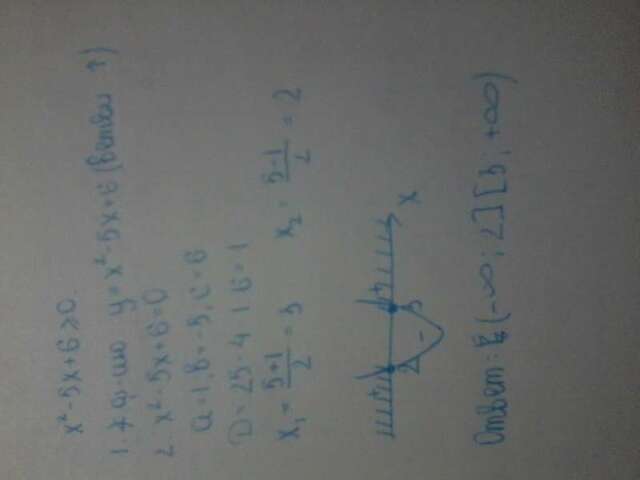 x² - 5x + 6 ≥ 0.
1. ф-ию y = x² - 5x + 6 (ветви ↑)
2. x² - 5x + 6 = 0
a = 1, b = -5, c = 6
D = 25 - 4 · 1 · 6 = 1
x₁ = (5+1)/2 = 3 x₂ = (5-1)/2 = 2
+ - +
2 3 x
Ответ: (-∞; 2] [3; +∞)